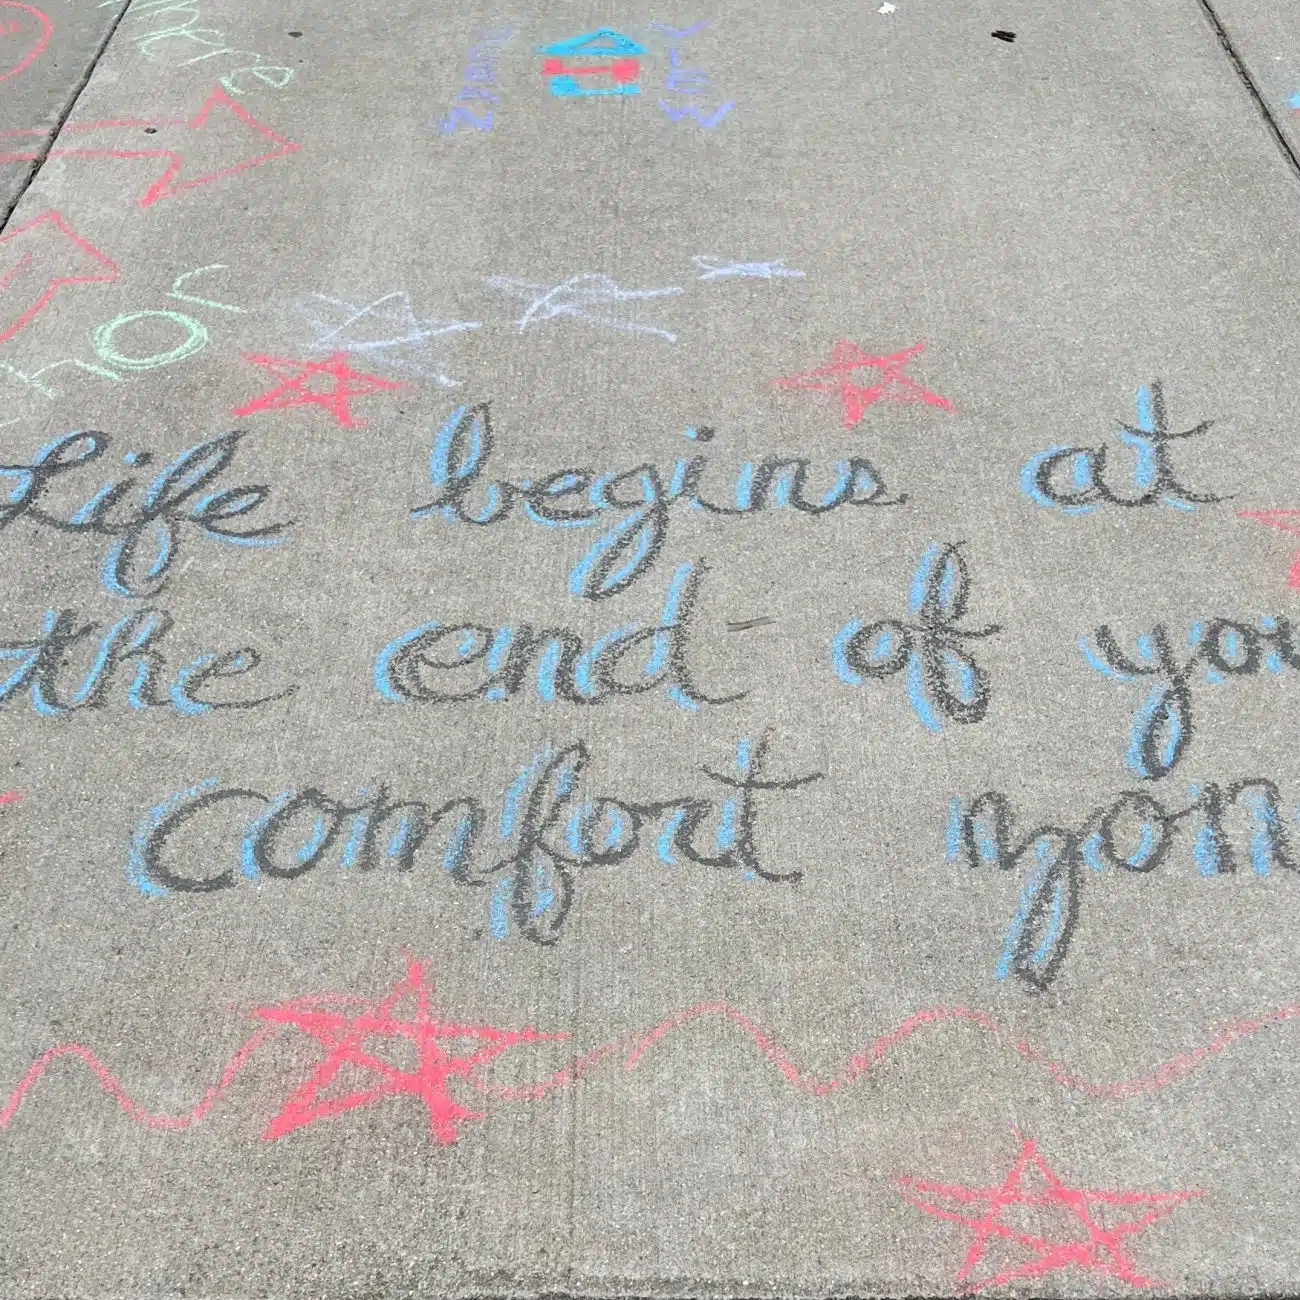 more
hor
Life begins at
the end of you
comfort yon